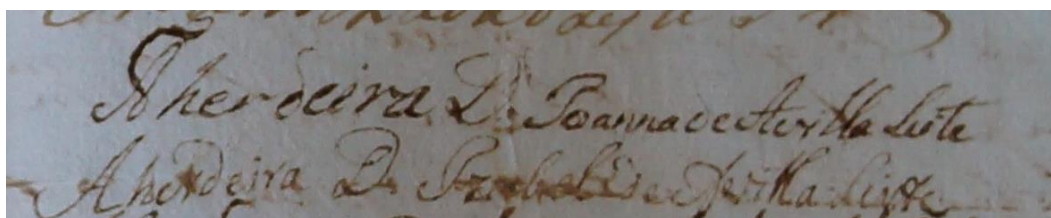 A herdeira D. Joanna de Avilla Leite
A herdeira D. Izabel de Avilla Leite